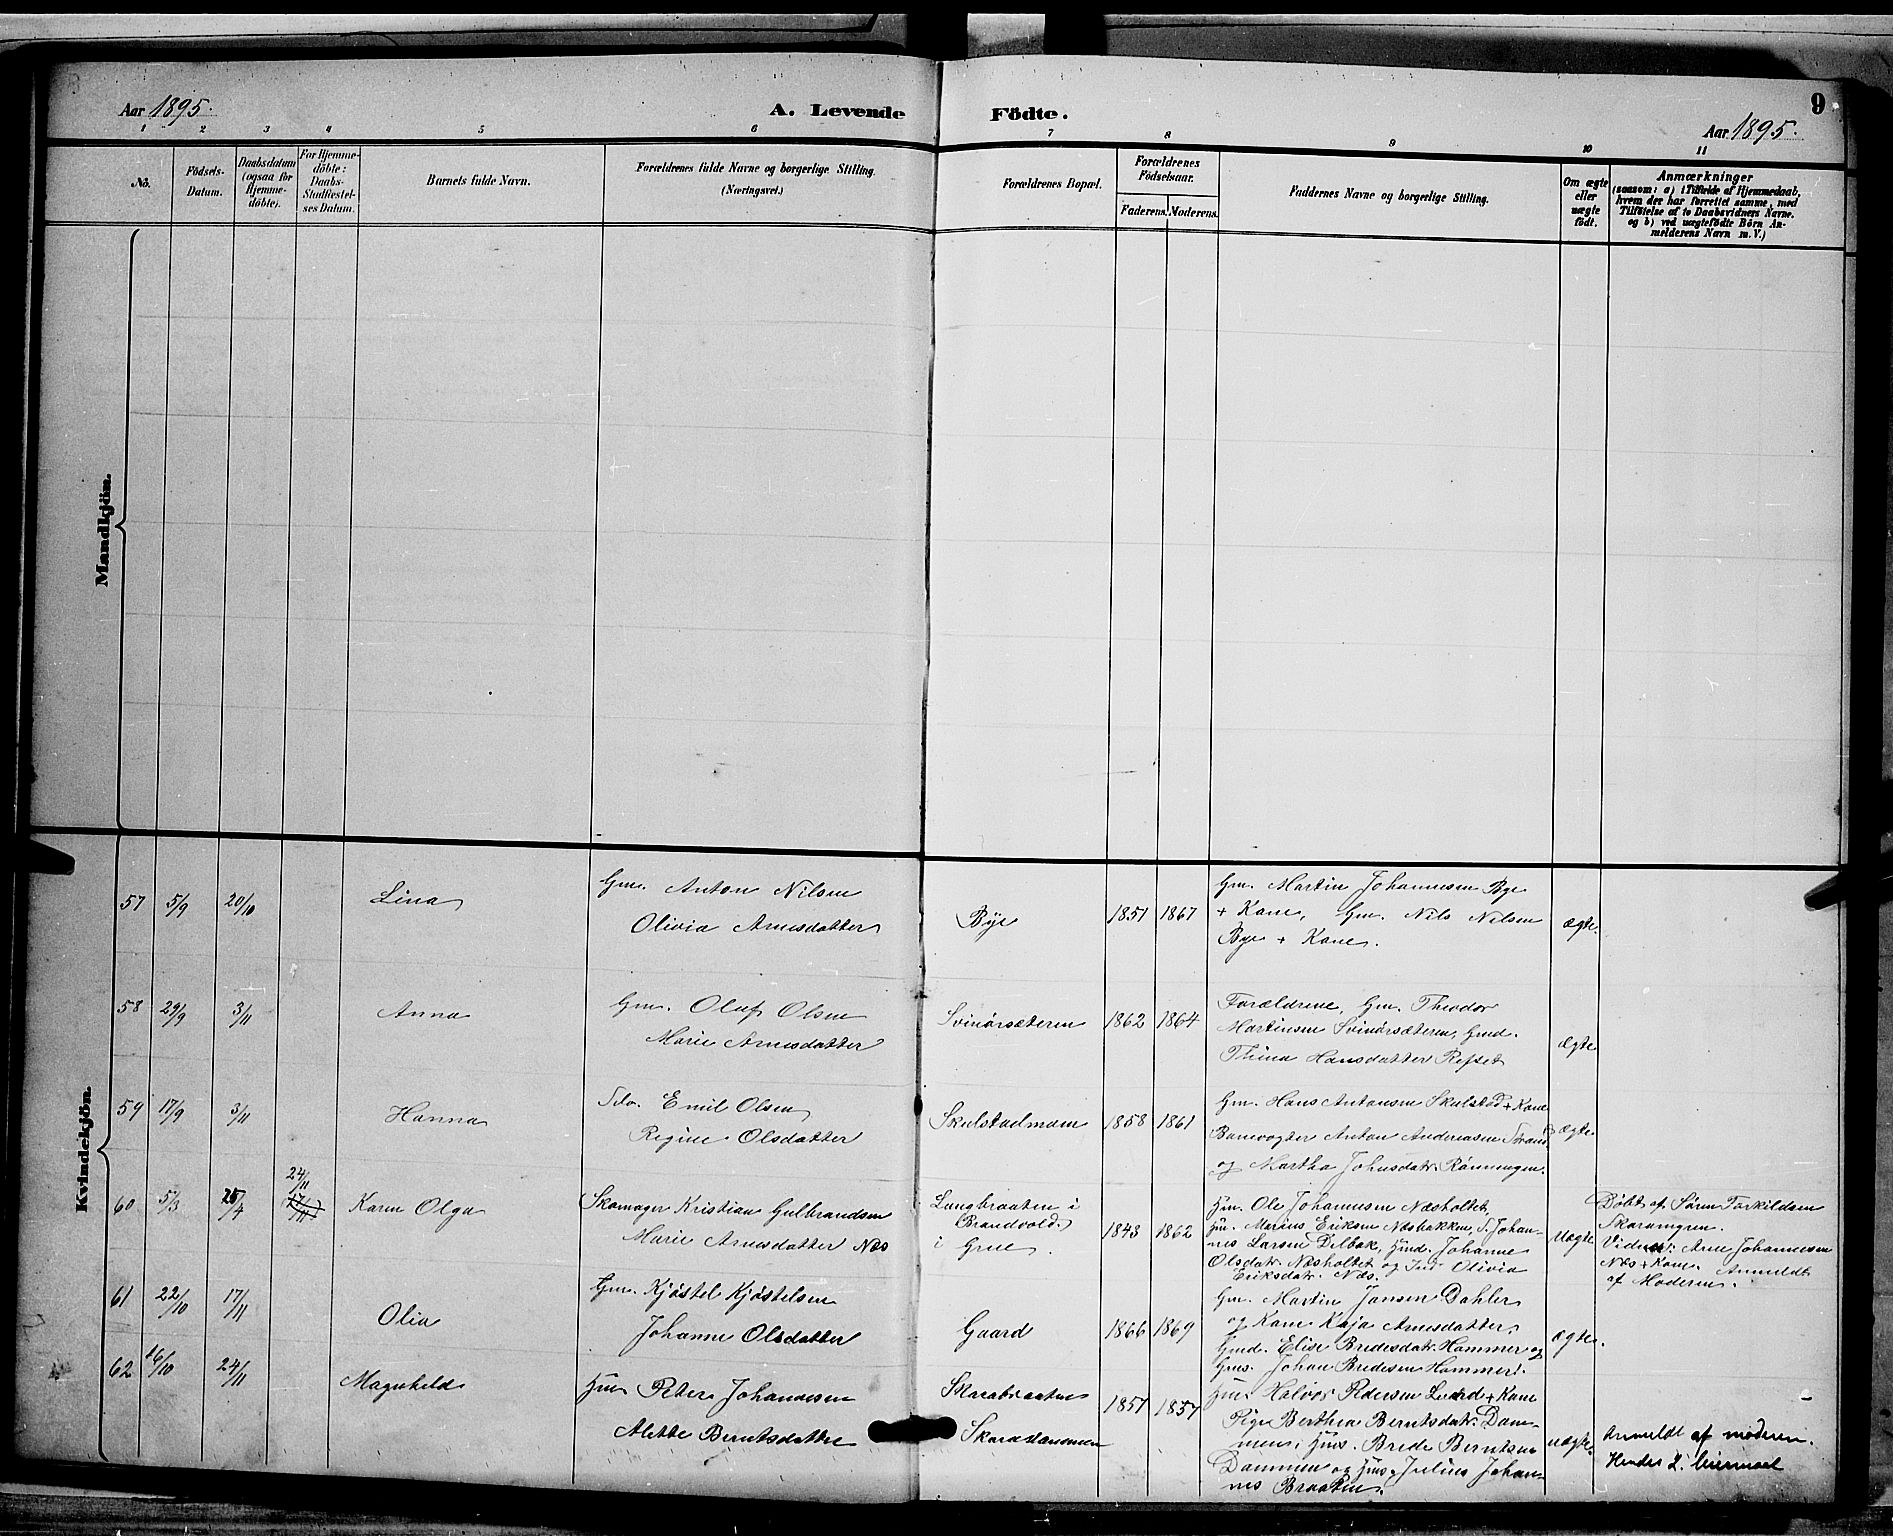 Aar 1895.
A. Levende Födte.
9
Aar 1895.
1 2 3 4 5 6 7 8 9 10 11
No.
Födsels-
Datum.
Daabsdatum
(ogsaa for
Hjemme-
döbte).
For Hjemme-
döbte:
Daabs-
Stadfæstel-
ses Datum.
Barnets fulde Navn.
Forældrenes fulde Navne og borgerlige Stilling.
(Næringsvei.)
Forældrenes Bopæl.
Forældrenes
Födselsaar.
Faderens. Moderens.
Faddernes Navne og borgerlige Stilling.
Om ægte
eller
uægte
födt.
Anmærkninger
(saasom: a) i Tilfælde af Hjemmedaab,
hvem der har forrettet samme, med
Tilföielse af to Daabsvidners Navne.
og b) ved uægtefödte Börn An-
melderens Navn m. V.)
Mandkjön.
Kvindekjön.
57 5/9 20/10 Lina
Gm. Anton Nilsen
Olivia Arnesdatter
Bye
1851 1867
Gm. Martin Johannesen Bye
+ Kone, Gm. Nils Nilsen
Bye + Kone.
ægte.
58 29/9 3/11 Anna
Gm. Olaf Olsen
Marie Arnesdatter
Svinörsæteren
1862 1864
Forældrene, Gm. Theodor
Martinsen Svinörsæteren, Gmd.
Thina Hansdatter Refset
Ægte
59 17/9 3/11 Hanna
Selv. Emil Olsen
Regine Olsdatter
Skulstadmoen
1858 1861
Gm. Hans Antonsen Skulstad + Kone
Banevogter Anton Andreasen
og Martha Johnsdatr. Rönningen.
ægte
60 5/3 25/4 24/11 17/11
Karen Olga
Skomager Kristian Gulbrandsen
Marie Arnesdatter Næs
Langbraaten i
Brandvold
i Grue.
1843 1862
Hm. Ole Johannesen Næsholtet,
Hm. Marius Eriksen Næsbakken, S. Johan-
nes Larsen Delbak, Hmd. Johanne
Olsdatr. Næsholtet og Ind. Olivia
Eriksdatr. Næs.
Uægte
Döbt af Sören Torkildsen
Skaramyren.
Vidner: Arne Johannesen
Næs + Kone. Anmeldt
af Moderen.
61 22/10 17/11 Olia
Gm. Kjöstel Kjöstelsen
Johanne Olsdatter
Gaard
1866 1869
Gm. Martin Jansen Dahler
og Kone Kaja Arnesdatter,
Gmd. Elise Bredesdatr. Hammer og
Gms. Johan Bredesen Hammer.
ægte.
62 16/10 24/11 Magnhild
Hm. Peter Johannesen
Alette Berntsdatter
Skarabraaten
Skarastammen
1857 1857
Hm. Halvor Pedersen Lund + Kone
Pige Berthea Berntsdatr. Dam-
men, Hms. Brede Berntsen
Dammen og Hms. Julius Johan-
nes Braaten.
uægte.
Anmeldt af moderen.
Hendes 2. leiermaal